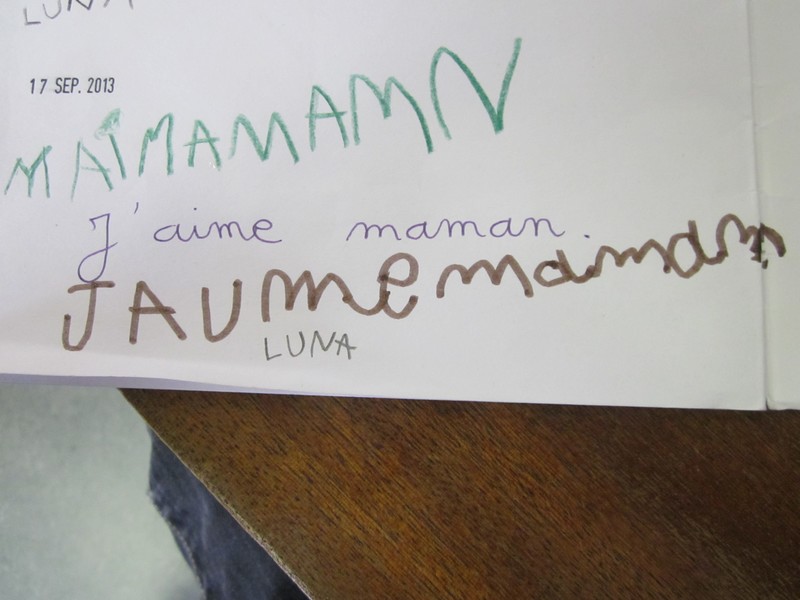 LUNA
17 SEP. 2013
MAÏMAMAMN
J'aime maman.
JAUme maman
LUNA